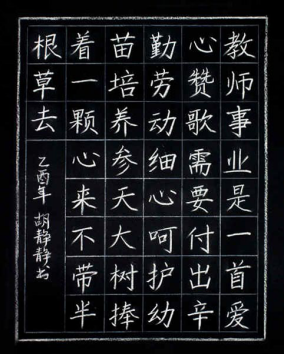 教师事业是一首爱
心赞歌需要付出辛
勤劳动细心呵护幼
苗培养参天大树捧
着一颗心来不带半
根草去
乙酉年 胡静静书